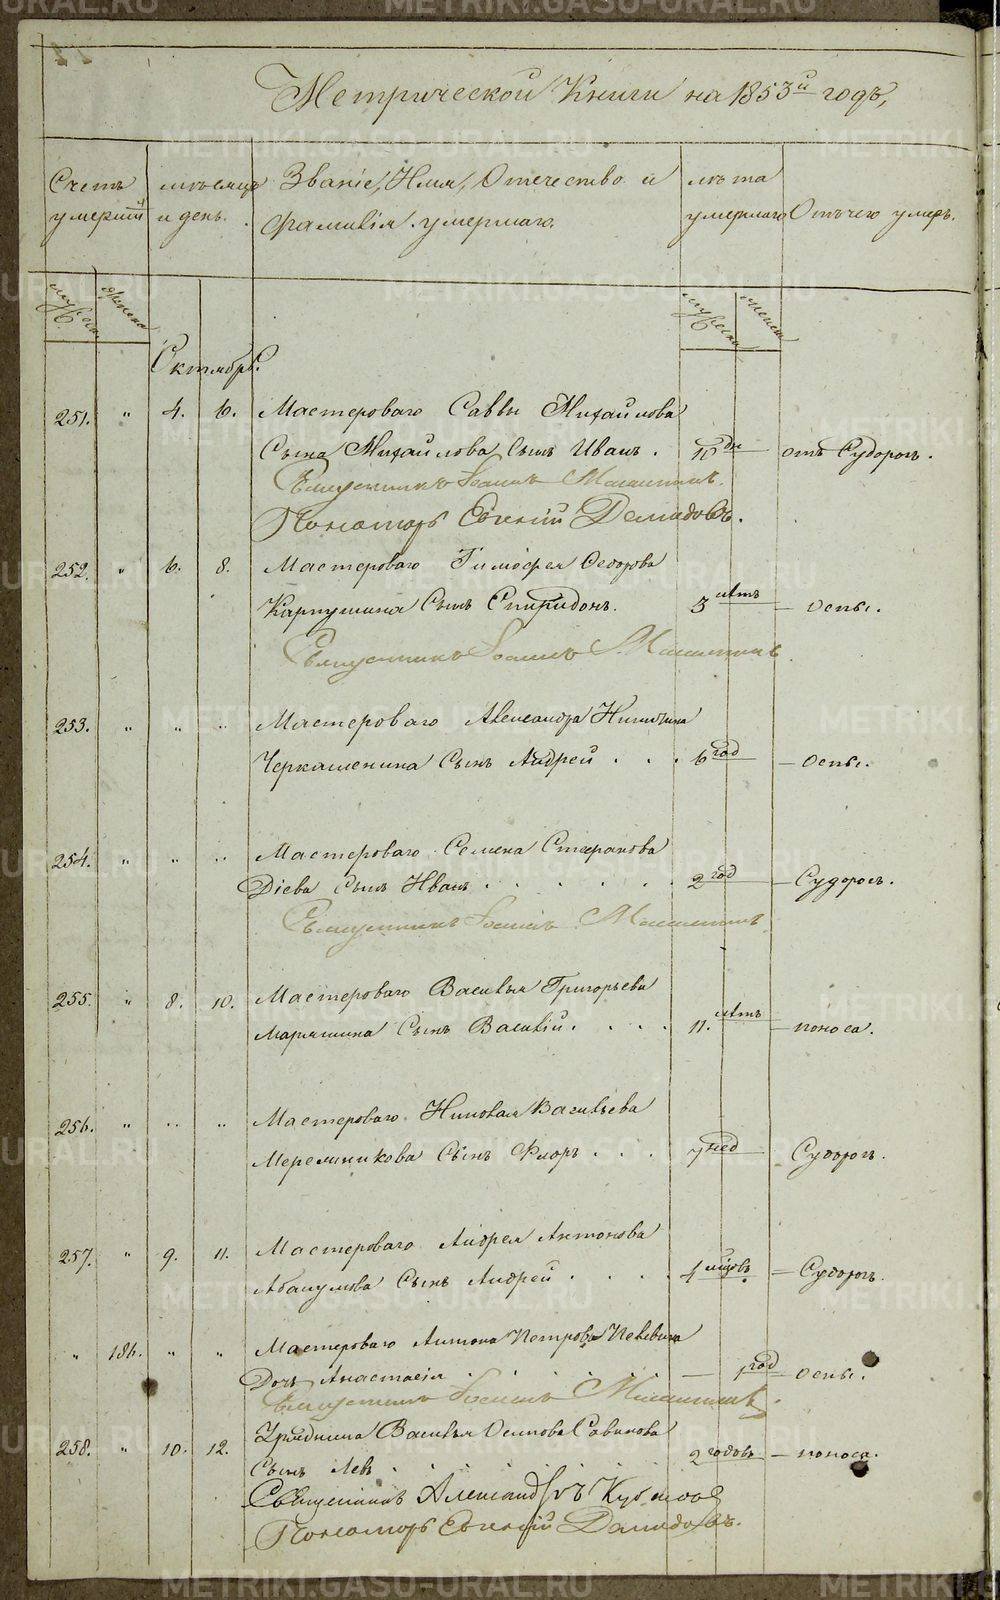 Метрической Книги на 1853й годъ,
Счетъ умершихъ
мѣсяцъ и день.
Званіе, Имя, Отчество и фамилія умершаго.
лѣта умершаго
Отъ чего умеръ.
мужеска женска
мужеска женска
Октябрь.
251. " 4. 6. Мастероваго Саввы Михайлова
Сына Михайлова Сынъ Иванъ. 10 дн отъ Судорог.
Священникъ Іоаннъ
Пономарь Евгеній Демидовъ.
252. " 6. 8. Мастероваго Тимофея Федорова
Карпушина Сынъ Спиридонъ. 3 лѣтъ — оспы.
Священникъ Іоаннъ
253. " " " Мастероваго Александра Никитина
Черкашенина Сынъ Андрей . . . 6 год — оспы.
254. " " " Мастероваго Семена Стефанова
Діева Сынъ Иванъ . . . . . 2 год — Судорог.
Священникъ Іоаннъ
255. " 8. 10. Мастероваго Василья Григорьева
Сынъ Василій . . . . 11. лѣтъ — поноса.
256. " " " Мастероваго Николая Васильева
Сынъ Флоръ . . . 7 нед Судорог.
257. " 9. 11. Мастероваго Андрея Антонова
Абакумова Сынъ Андрей . . . . мцовъ — Судорог.
" 186. " " Мастероваго Антона Петрова
Дочь Анастасія — 1 год — оспы.
Священникъ Іоаннъ
258. " 10. 12. Урядника Василья Осипова Савинова
Сынъ Левъ . . . 2 годовъ — поноса.
Священникъ Александръ
Пономарь Евгеній Демидовъ.
METRIKI.GASO-URAL.RU